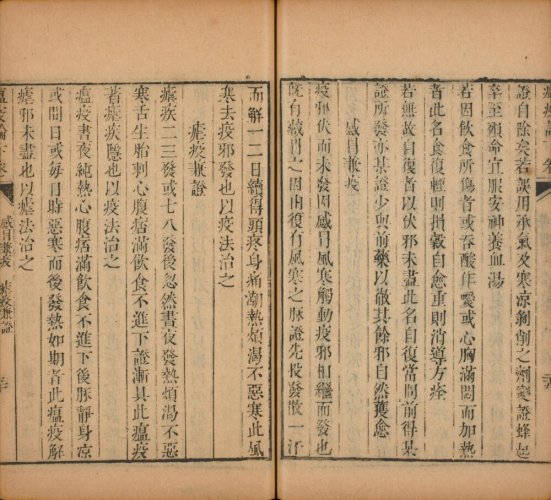 瘟疫論下卷
證自除矣若誤用承氣及寒涼剝削之劑變證蜂起
卒至殞命宜服安神養血湯
若因飲食所傷者或吞酸作噯或心腹滿悶而加熱
者此名食復輕則損穀自愈重則消導方痊
若無故自復者以伏邪未盡此名自復當問前得某
證所發亦某證少與前藥以徹其餘邪自然獲愈
感冒兼疫
疫邪伏而未發因感冒風寒觸動疫邪相繼而發也
既有感冒之因由復有風寒之脉證先投發散一汗
而解一二日續得頭疼身痛潮熱煩渴不惡寒此風
寒去疫邪發也以疫法治之
瘧疫兼證
瘧疾二三發或七八發後忽然晝夜發熱煩渴不惡
寒舌生胎刺心腹痞滿飲食不進下證漸具此瘟疫
著瘧疾隱也以疫法治之
瘟疫晝夜純熱心腹痞滿飲食不進下後脉靜身涼
或間日或每日時惡寒而後發熱如期者此瘟疫解
瘧邪未盡也以瘧法治之
瘟疫論下卷
感冒兼疫 瘧疫兼證